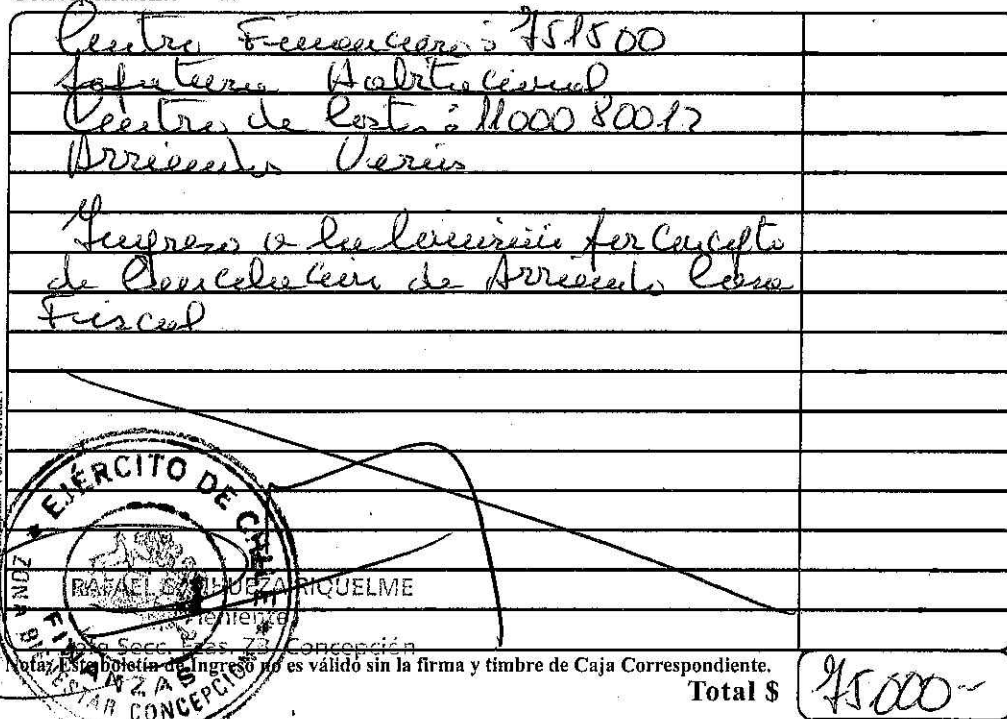 Centro Financiero: 751500
Jefatura Habitacional
Centro de Costo: 1100080012
Arriendos Varios
Ingreso a la Comisión por Concepto
de Cancelación de Arriendo Casa
Fiscal
EJÉRCITO DE CHILE
FINANZAS
ZONA BIENESTAR CONCEPCIÓN
RAFAEL SANHUEZA RIQUELME
Teniente
Jefe Secc. Fzas. ZB. Concepción
Nota: Este boletín de Ingreso no es válido sin la firma y timbre de Caja Correspondiente.
Total $ 75.000-